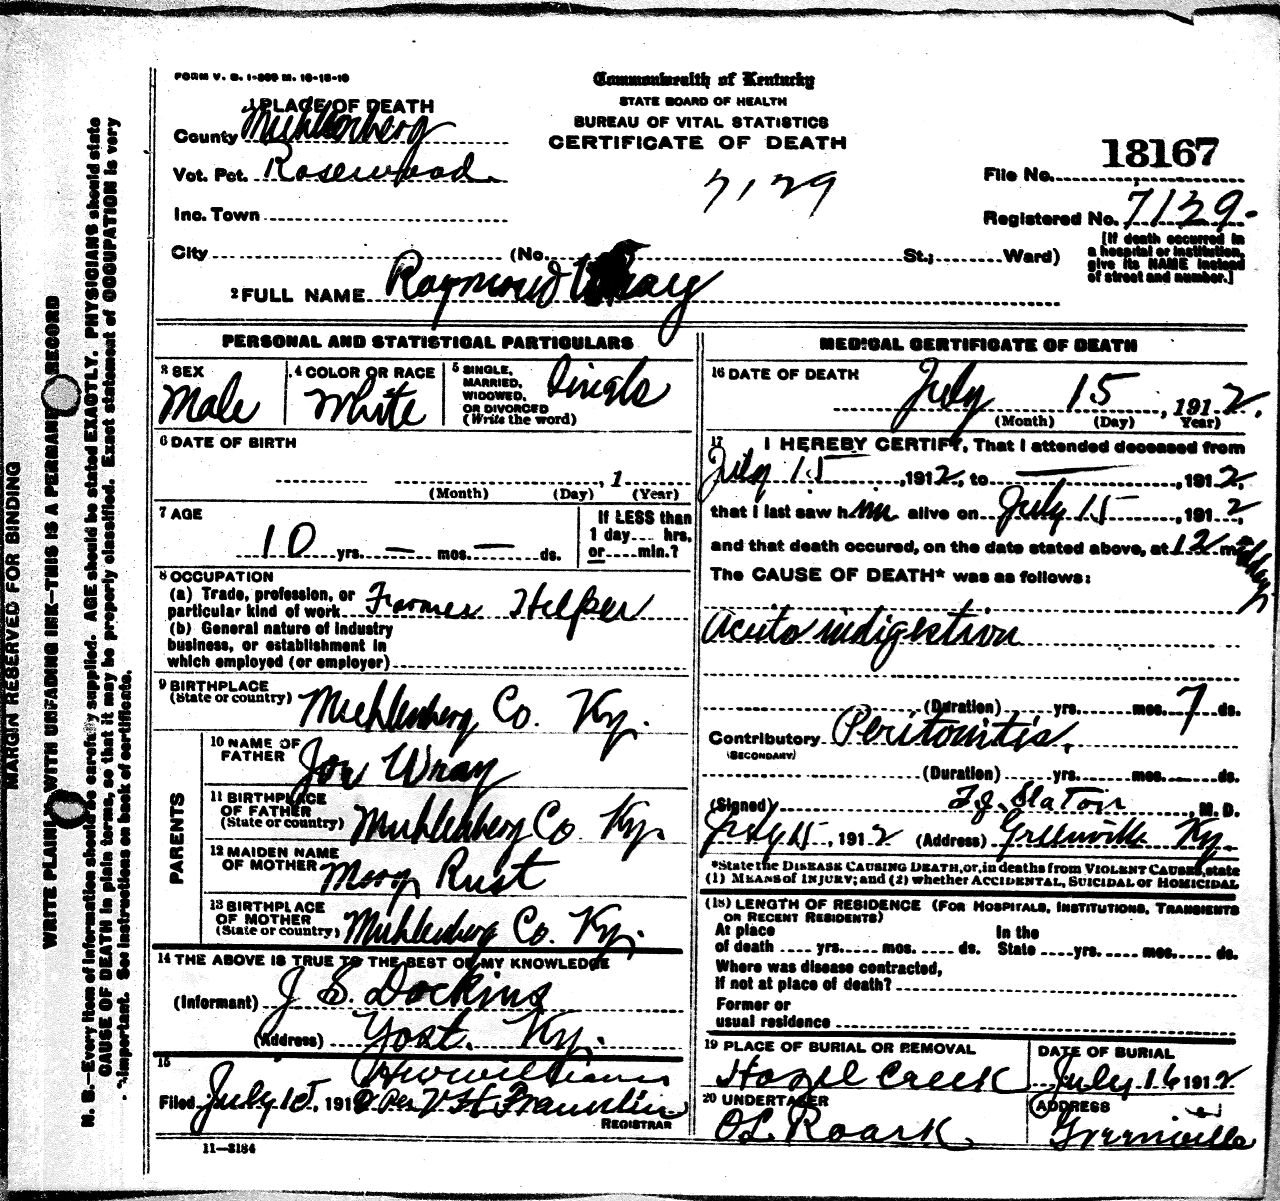 FORM V. S. 1-300 M. 10-18-10
Commonwealth of Kentucky
STATE BOARD OF HEALTH
BUREAU OF VITAL STATISTICS
CERTIFICATE OF DEATH
1 PLACE OF DEATH
County Muhlenberg
Vot. Pct. Rosewood
Inc. Town
City (No. St.; Ward)
7129
18167
File No.
Registered No. 7139
[If death occurred in
a hospital or institution,
give its NAME instead
of street and number.]
2 FULL NAME Raymond
PERSONAL AND STATISTICAL PARTICULARS
3 SEX
Male
4 COLOR OR RACE
White
5 SINGLE,
MARRIED,
WIDOWED,
OR DIVORCED
(Write the word)
Single
6 DATE OF BIRTH
, 1
(Month) (Day) (Year)
7 AGE
10 yrs. — mos. — ds.
If LESS than
1 day.... hrs.
or.....min.?
8 OCCUPATION
(a) Trade, profession, or
particular kind of work Farmer Helper
(b) General nature of industry
business, or establishment in
which employed (or employer)
9 BIRTHPLACE
(State or country) Muhlenberg Co. Ky.
PARENTS
10 NAME OF
FATHER Joe Wray
11 BIRTHPLACE
OF FATHER
(State or country) Muhlenberg Co Ky.
12 MAIDEN NAME
OF MOTHER Mary Rust
13 BIRTHPLACE
OF MOTHER
(State or country) Muhlenberg Co. Ky.
14 THE ABOVE IS TRUE TO THE BEST OF MY KNOWLEDGE
(Informant) J S. Dockins
(Address) Yost. Ky.
15
Filed July 15, 191 Per V H Franklin
REGISTRAR
11—3184
MEDICAL CERTIFICATE OF DEATH
16 DATE OF DEATH
July 15, 1912.
(Month) (Day) Year)
17 I HEREBY CERTIFY, That I attended deceased from
July 15, 1912, to —, 1912.
that I last saw him alive on July 15, 1912,
and that death occured, on the date stated above, at 12 m midday
The CAUSE OF DEATH* was as follows:
Acute indigestion
(Duration) yrs. mos. 7 ds.
Contributory Peritonitis.
(SECONDARY)
(Duration) yrs. mos. ds.
(Signed) T.J. Slaton, M. D.
July 15, 1912 (Address) Greenville Ky.
*State the DISEASE CAUSING DEATH, or, in deaths from VIOLENT CAUSES, state
(1) MEANS of INJURY; and (2) whether ACCIDENTAL, SUICIDAL or HOMICIDAL
(18) LENGTH OF RESIDENCE (FOR HOSPITALS, INSTITUTIONS, TRANSIENTS
OR RECENT RESIDENTS)
At place In the
of death .... yrs..... mos. .... ds. State ....yrs..... mos. ....ds.
Where was disease contracted,
If not at place of death?
Former or
usual residence
19 PLACE OF BURIAL OR REMOVAL
Hazel Creek
DATE OF BURIAL
July 16 1912
20 UNDERTAKER
OL Roark
ADDRESS
Greenville
MARGIN RESERVED FOR BINDING
WRITE PLAINLY WITH UNFADING INK—THIS IS A PERMANENT RECORD
N. B.—Every item of information should be carefully supplied. AGE should be stated EXACTLY. PHYSICIANS should state
CAUSE OF DEATH in plain terms, so that it may be properly classified. Exact statement of OCCUPATION is very
important. See instructions on back of certificate.